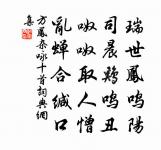 瑞世鳳鳴陽
司晨鷄鳴丑
呶呶取人憎
亂蟬合緘口
方鳳雜咏十首詞典網
集